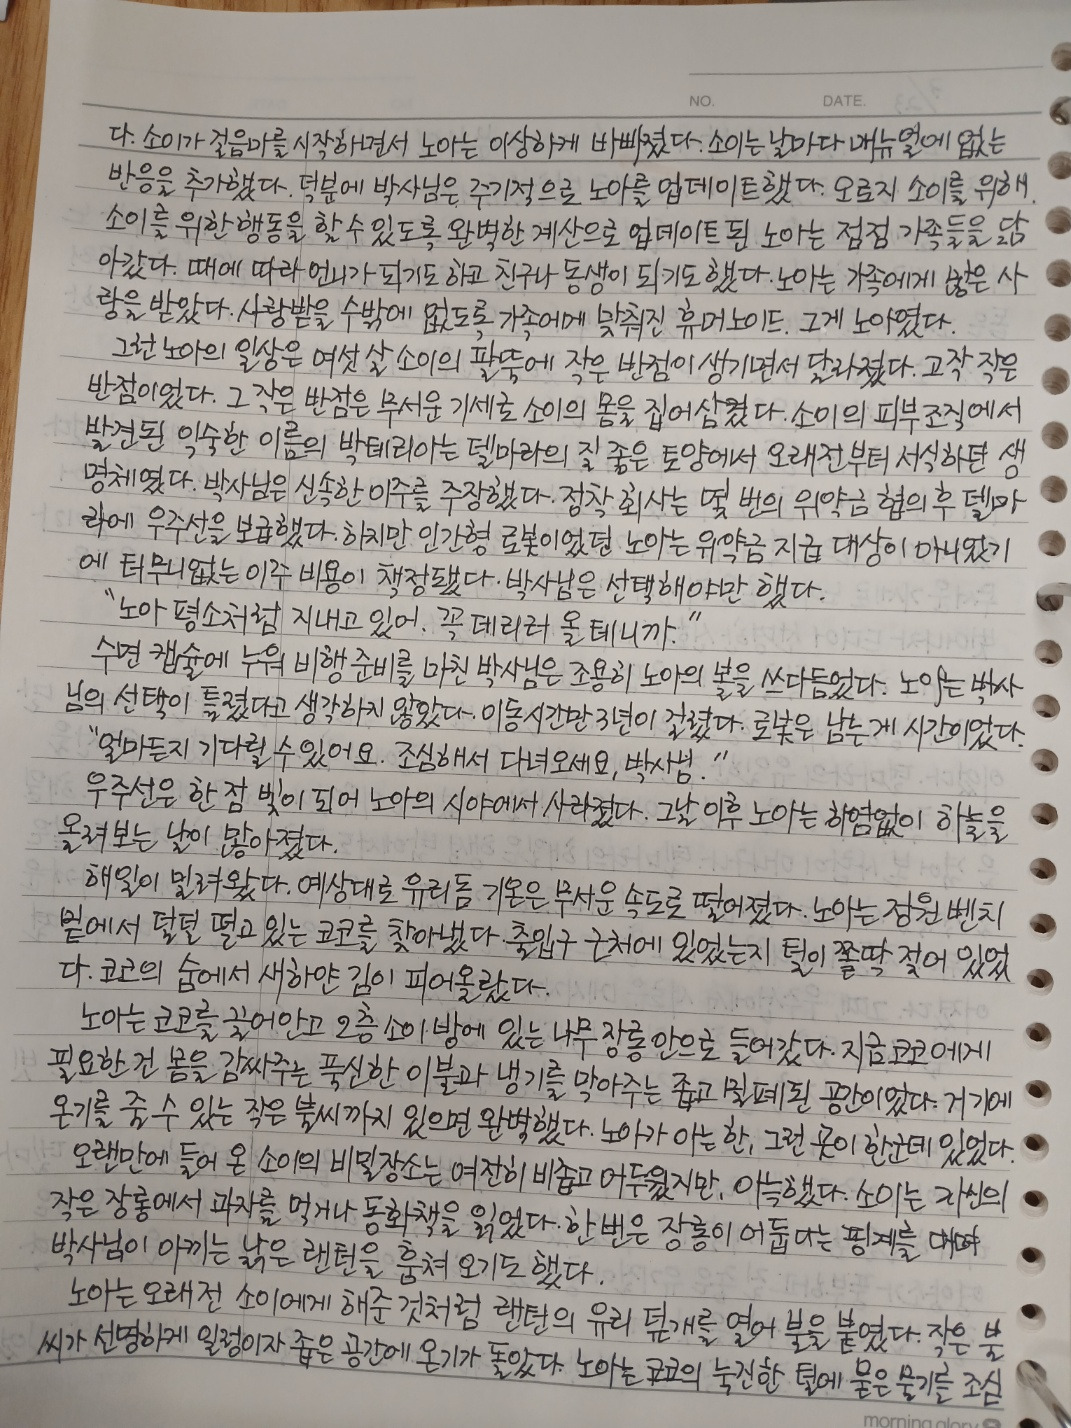 NO. DATE.
다. 소이가 걸음마를 시작하면서 노아는 이상하게 바빠졌다. 소이는 날마다 매뉴얼에 없는
반응을 추가했다. 덕분에 박사님은 주기적으로 노아를 업데이트했다. 오로지 소이를 위해.
소이를 위한 행동을 할 수 있도록 완벽한 계산으로 업데이트된 노아는 점점 가족들을 닮
아갔다. 때에 따라 언니가 되기도 하고 친구나 동생이 되기도 했다. 노아는 가족에게 많은 사
랑을 받았다. 사랑받을 수밖에 없도록 가족에게 맞춰진 휴머노이드. 그게 노아였다.
그런 노아의 일상은 여섯 살 소이의 팔뚝에 작은 반점이 생기면서 달라졌다. 고작 작은
반점이었다. 그 작은 반점은 무서운 기세로 소이의 몸을 집어삼켰다. 소이의 피부조직에서
발견된 익숙한 이름의 박테리아는 델마라의 질 좋은 토양에서 오래전부터 서식하던 생
명체였다. 박사님은 신속한 이주를 주장했다. 정착 회사는 몇 번의 위약금 협의 후 델마
라에 우주선을 보급했다. 하지만 인간형 로봇이었던 노아는 위약금 지급 대상이 아니었기
에 터무니없는 이주 비용이 책정됐다. 박사님은 선택해야만 했다.
"노아 평소처럼 지내고 있어. 꼭 데리러 올 테니까."
수면 캡슐에 누워 비행 준비를 마친 박사님은 조용히 노아의 볼을 쓰다듬었다. 노아는 박사
님의 선택이 틀렸다고 생각하지 않았다. 이동시간만 3년이 걸렸다. 로봇은 남는 게 시간이었다.
"얼마든지 기다릴 수 있어요. 조심해서 다녀오세요, 박사님."
우주선은 한 점 빛이 되어 노아의 시야에서 사라졌다. 그날 이후 노아는 하염없이 하늘을
올려보는 날이 많아졌다.
해일이 밀려왔다. 예상대로 유리돔 기온은 무서운 속도로 떨어졌다. 노아는 정원 벤치
밑에서 덜덜 떨고 있는 코코를 찾아냈다. 출입구 근처에 있었는지 털이 쫄딱 젖어 있었
다. 코코의 숨에서 새하얀 김이 피어올랐다.
노아는 코코를 끌어안고 2층 소이 방에 있는 나무 장롱 안으로 들어갔다. 지금 코코에게
필요한 건 몸을 감싸주는 푹신한 이불과 냉기를 막아주는 좁고 밀폐된 공간이었다. 거기에
온기를 줄 수 있는 작은 불씨까지 있으면 완벽했다. 노아가 아는 한, 그런 곳이 한군데 있었다.
오랜만에 들어 온 소이의 비밀장소는 여전히 비좁고 어두웠지만, 아늑했다. 소이는 자신의
작은 장롱에서 과자를 먹거나 동화책을 읽었다. 한 번은 장롱이 어둡다는 핑계를 대며
박사님이 아끼는 낡은 랜턴을 훔쳐 오기도 했다.
노아는 오래전 소이에게 해준 것처럼 랜턴의 유리 덮개를 열어 불을 붙였다. 작은 불
씨가 선명하게 일렁이자 좁은 공간에 온기가 돌았다. 노아는 코코의 눅진한 털에 묻은 물기를 조심
morning glory